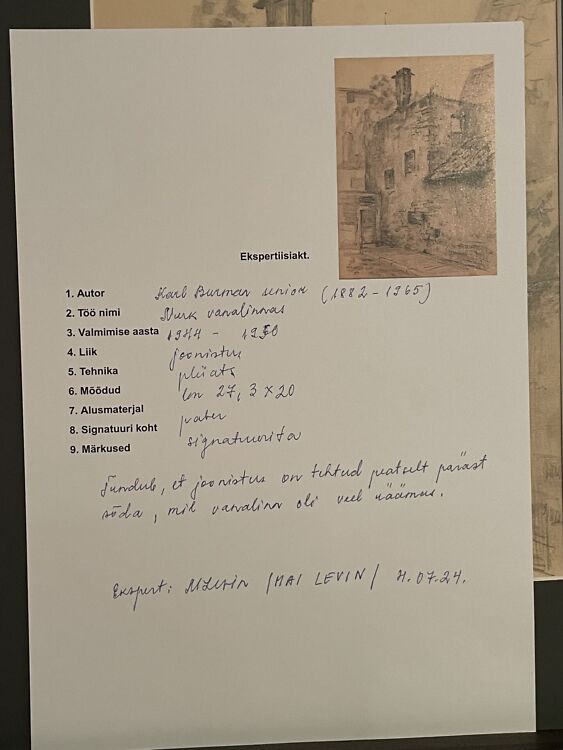 Ekspertiisiakt.
1. Autor Karl Burman senior (1882 - 1965)
2. Töö nimi Nurk vanalinnas
3. Valmimise aasta 1944 - 1950
4. Liik joonistus
5. Tehnika pliiats
6. Mõõdud Lm 27,3 x 20
7. Alusmaterjal paber
8. Signatuuri koht signatuurita
9. Märkused
Tundub, et joonistus on tehtud peatselt pärast
sõda, mil vanalinn oli veel räämas.
Ekspert: MLevin /MAI LEVIN/ 4.07.24.